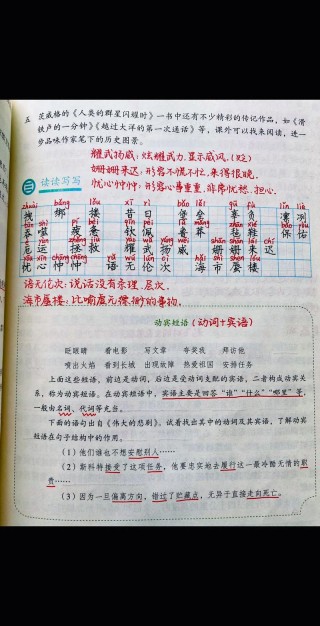 五 茨威格的《人类的群星闪耀时》一书中还有不少精彩的传记作品，如《滑
铁卢的一分钟》《越过大洋的第一次通话》等，课外可以找来阅读，进一
步品味作家笔下的历史图景。
耀武扬威：炫耀武力，显示威风。(贬)
姗姗来迟：形容不慌不忙，来得很晚。
忧心忡忡：形容心事重重，非常忧愁、担心。
三 读读写写
zhuài bǎng lǒu xī rì bǎo lěi gū fù lǐn liè
拽 绑 搂 昔日 堡垒 辜负 凛冽
吞噬 疲惫 钦佩 癫 告罄 毡鞋 保佑
厄运 拯救 耀武扬威 姗姗来迟
忧心忡忡 语无伦次 海市蜃楼
语无伦次：说话没有条理、层次。
海市蜃楼：比喻虚无缥缈的事物。
动宾短语（动词+宾语）
眨眼睛 看电影 写文章 夸奖我 拜访他
喷出火焰 看到长城 出现故障 热爱祖国 安排任务
上面这些短语，前边是动词，后边是受动词支配的宾语，二者构成动宾关
系，称为动宾短语。在动宾短语中，宾语主要是回答“谁”“什么”“哪里”等，
一般由名词、代词等充当。
下面的语句出自《伟大的悲剧》。试着找出其中的动词及其宾语，了解动宾
短语在句子结构中的作用。
（1）他们谁也不想安慰别人……
（2）斯科特接受了这项任务，他要忠实地去履行这一最冷酷无情的职
责……
（3）因为一旦偏离方向，错过了贮藏点，无异于直接走向死亡。